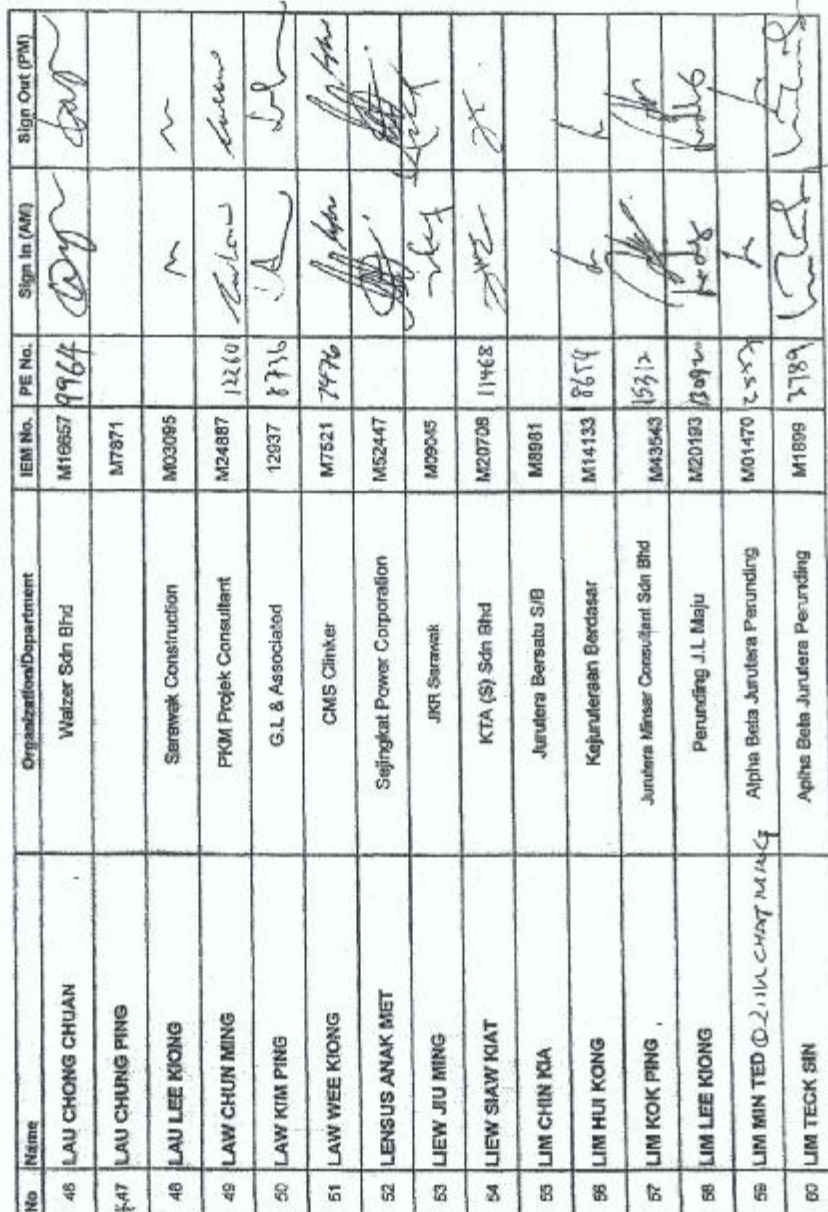 No Name Organization/Department IEM No. PE No. Sign In (AM) Sign Out (PM)
46 LAU CHONG CHUAN Walzer Sdn Bhd M16657 9964
47 LAU CHUNG PING M7871
48 LAU LEE KIONG Sarawak Construction M03095
49 LAW CHUN MING PKM Projek Consultant M24887 12260
50 LAW KIM PING G.L & Associated 12937 8736
51 LAW WEE KIONG CMS Clinker M7521 7476
52 LENSUS ANAK MET Sejingkat Power Corporation M52447
53 LIEW JIU MING JKR Sarawak M09045
54 LIEW SIAW KIAT KTA (S) Sdn Bhd M20708 11468
55 LIM CHIN KIA Jurutera Bersatu S/B M8981
56 LIM HUI KONG Kejuruteraan Berdasar M14133
57 LIM KOK PING Jurutera Minsar Consultant Sdn Bhd M43543 15312
58 LIM LEE KIONG Perunding J.L Maju M20193 13092
59 LIM MIN TED Alpha Beta Jurutera Perunding M01470
60 LIM TECK SIN Aplha Beta Jurutera Perunding M1899 3789